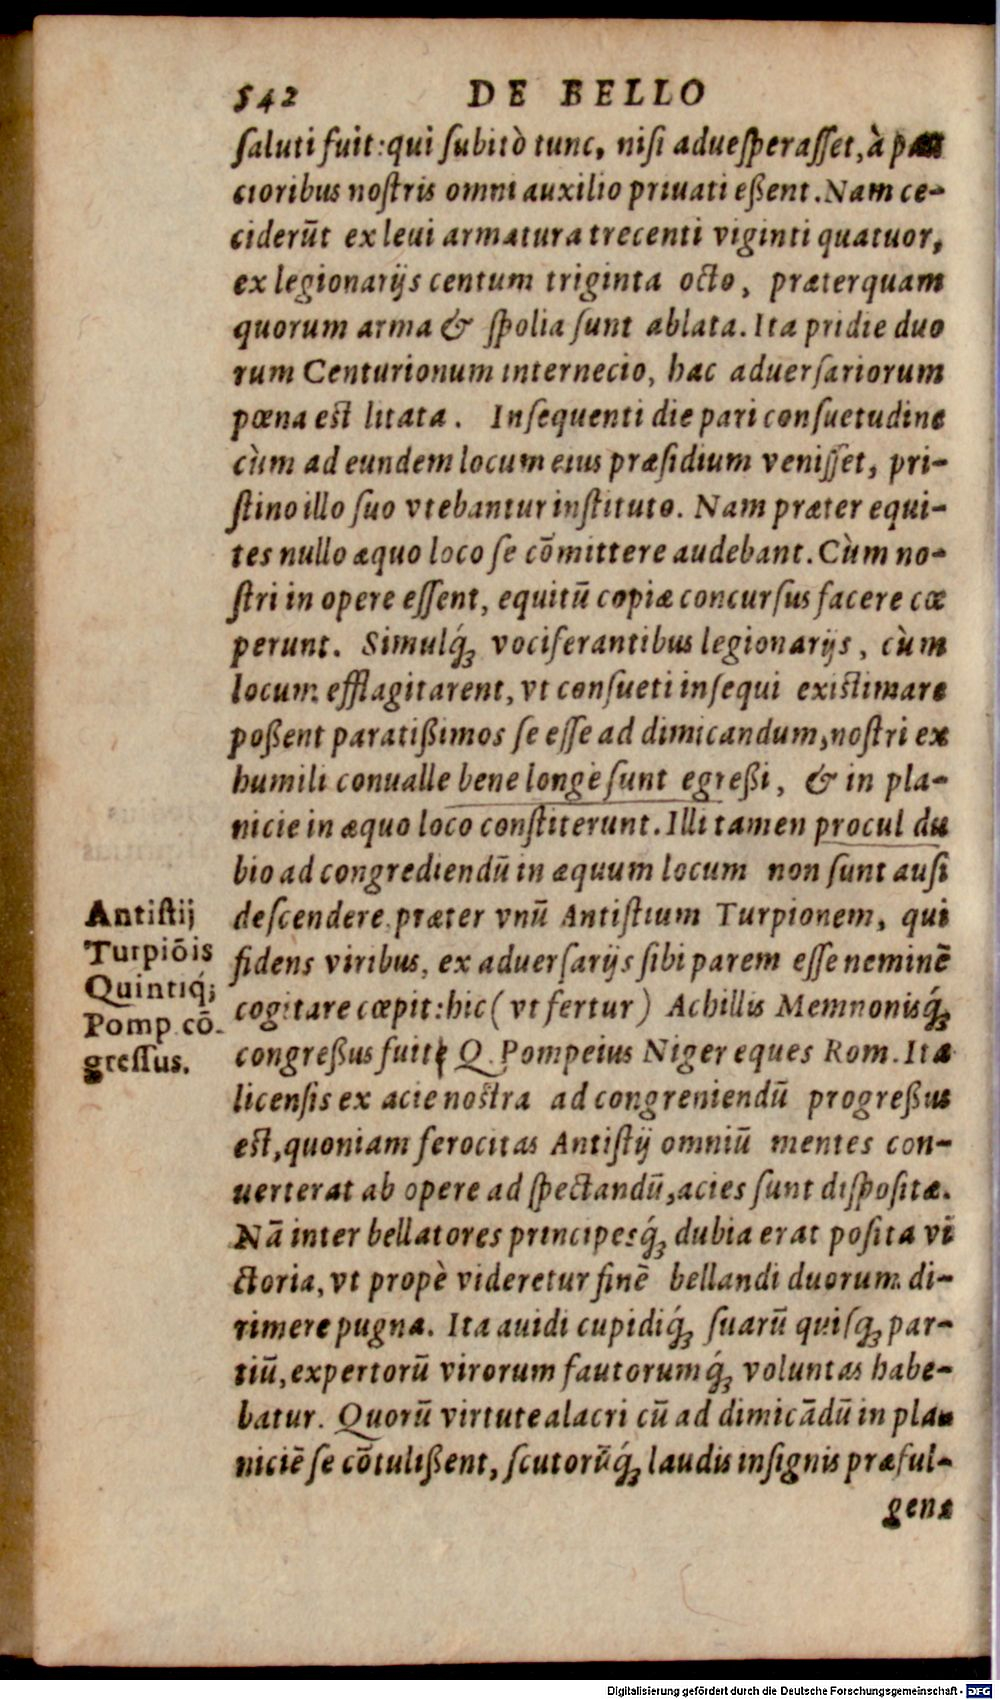 542 DE BELLO
ſaluti fuit: qui ſubitò tunc, niſi adueſperaſſet, à pau
cioribus noſtris omni auxilio priuati eßent. Nam ce-
ciderūt ex leui armatura trecenti viginti quatuor,
ex legionarijs centum triginta octo, præterquam
quorum arma & ſpolia ſunt ablata. Ita pridie duo
rum Centurionum internecio, hac aduerſariorum
pœna eſt litata. Inſequenti die pari conſuetudine
cùm ad eundem locum eius præſidium veniſſet, pri-
ſtino illo ſuo vtebantur inſtituto. Nam præter equi-
tes nullo æquo loco ſe cōmittere audebant. Cùm no-
ſtri in opere eſſent, equitū copiæ concurſus facere cœ
perunt. Simulq́ꝫ vociferantibus legionarijs, cùm
locum efflagitarent, vt conſueti inſequi exiſtimare
poßent paratißimos ſe eſſe ad dimicandum, noſtri ex
humili conualle bene longè ſunt egreßi, & in pla-
nicie in æquo loco conſtiterunt. Illi tamen procul du
bio ad congrediendū in æquum locum non ſunt auſi
deſcendere præter vnū Antiſtium Turpionem, qui
fidens viribus, ex aduerſarijs ſibi parem eſſe neminē
cogitare cœpit: hic (vt fertur) Achillis Memnonisq́ꝫ
congreßus fuit Q. Pompeius Niger eques Rom. Ita
licenſis ex acie noſtra ad congreniendū progreßus
eſt, quoniam ferocitas Antiſtij omniū mentes con-
uerterat ab opere ad ſpectandū, acies ſunt diſpoſitæ.
Nā inter bellatores principesq́ꝫ dubia erat poſita vi
ctoria, vt propè videretur finē bellandi duorum di-
rimere pugna. Ita auidi cupidiq́ꝫ ſuarū quiſqꝫ par-
tiū, expertorū virorum fautorumq́ꝫ voluntas habe-
batur. Quorū virtute alacri cū ad dimicādū in pla-
niciē ſe cōtulißent, ſcutorūq́ꝫ laudis inſignis præful-
gens
Antiſtij
Turpiōis
Quintiq́;
Pomp. cō-
greſſus.
Digitalisierung gefördert durch die Deutsche Forschungsgemeinschaft - DFG